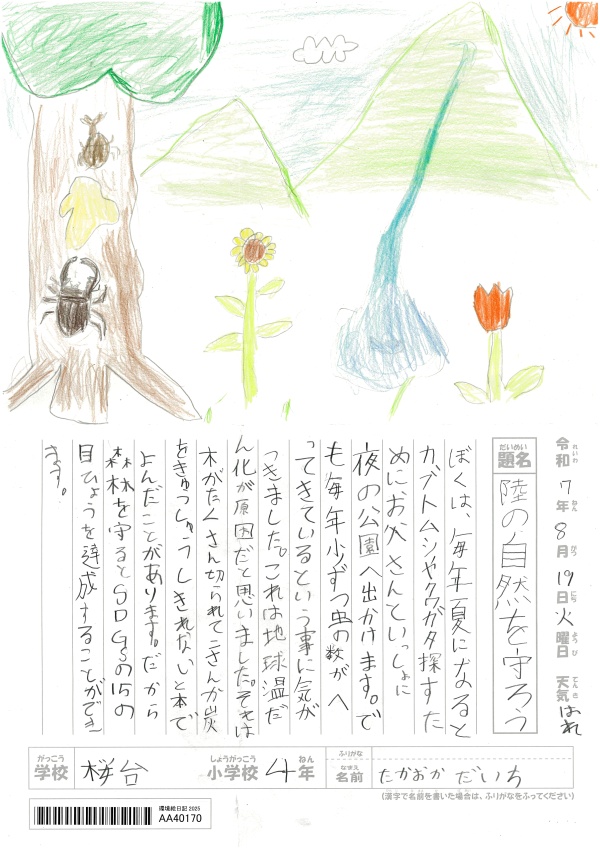 令和7年8月19日火曜日 天気はれ
れいわ ねん がつ にち ようび てんき
だいめい
題名
陸の自然を守ろう
ぼくは、毎年夏になると
カブトムシやクワガタ探すた
めにお父さんていっしょに
夜の公園へ出かけます。で
も毎年少ずつ虫の数がへ
ってきているという事に気が
つきました。これは地球温だ
ん化が原因だと思いました。それは
木がたくさん切られて二さんか炭
をきゅうしゅうしきれないと本で
よんだことがあります。だから
森林を守るとSDGSの15の
目ひょうを達成することができ
ます。
がっこう
学校
桜台
しょうがっこう
小学校
4
ねん
年
ふりがな
なまえ
名前
たかおか だいち
(漢字で名前を書いた場合は、ふりがなをふってください)
環境絵日記 2025
AA40170